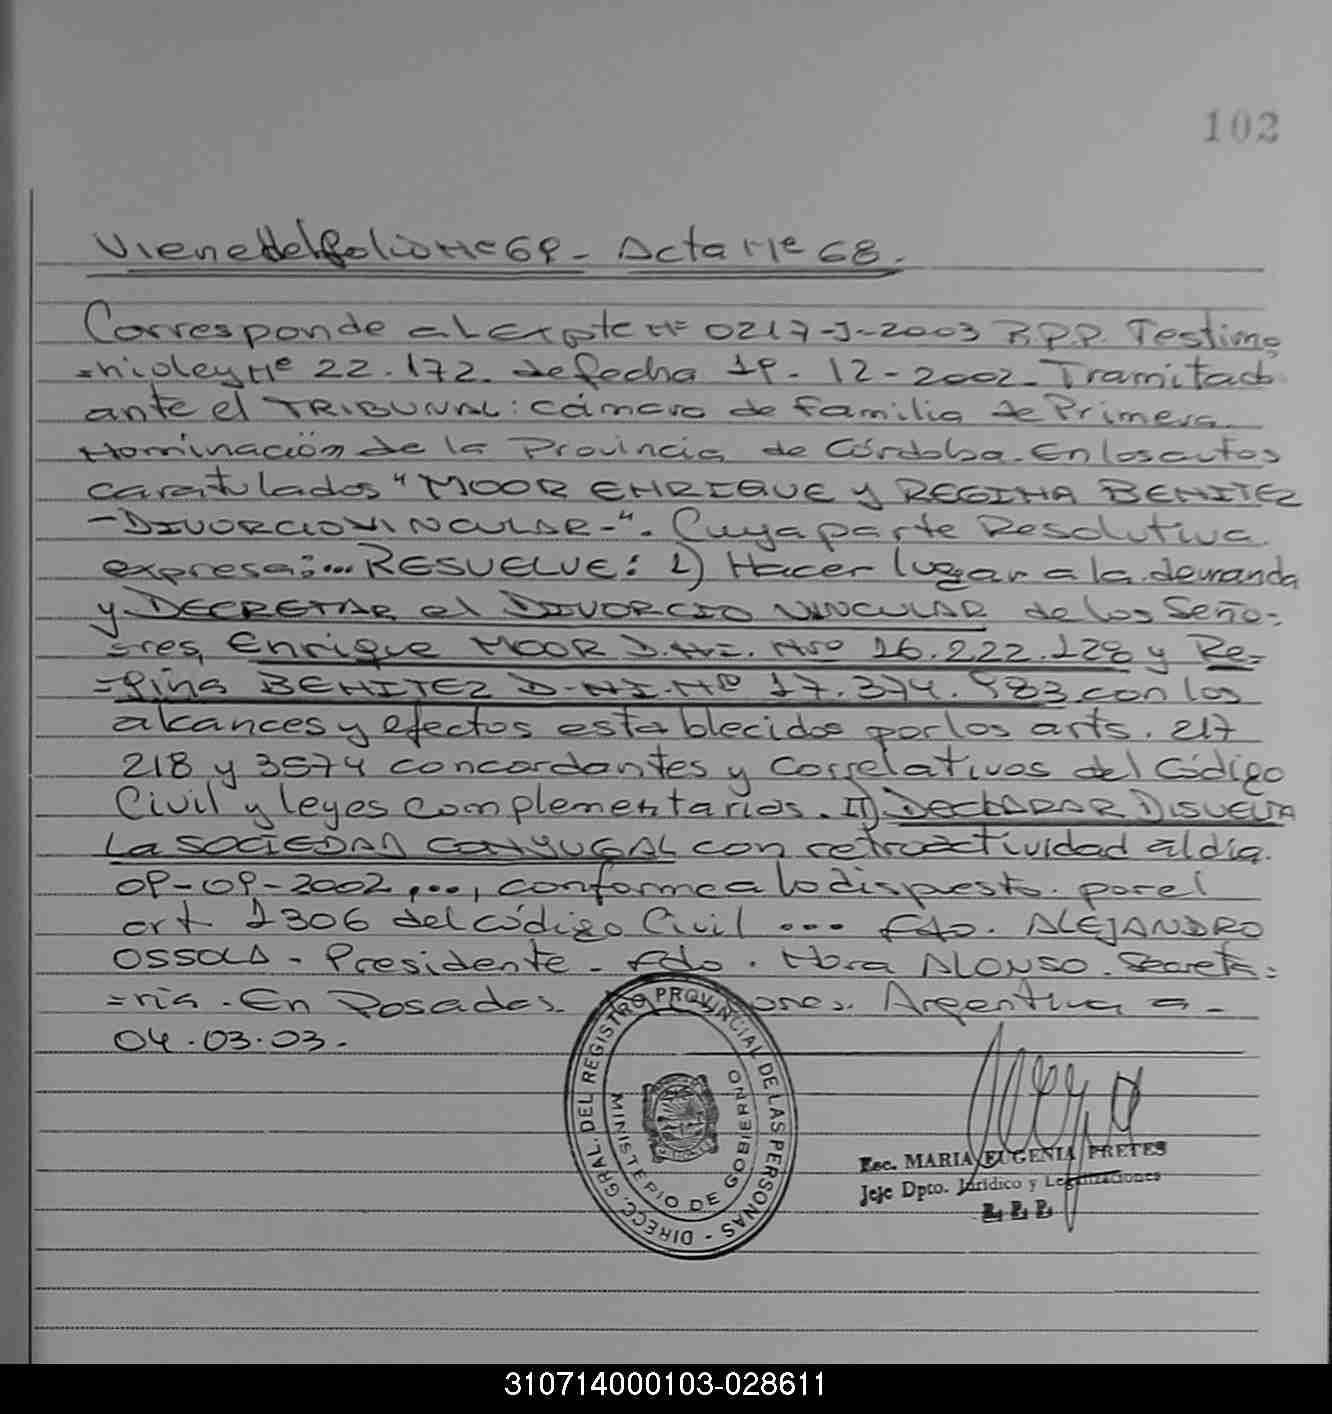 102
Viene del folio Nº 69 - Acta Nº 68.
Corresponde al Expte Nº 0217-J-2003 R.P.P. Testimo
=nio ley Nº 22.172. de fecha 19-12-2002. Tramitado
ante el TRIBUNAL: Cámara de Familia de Primera
Nominación de la Provincia de Córdoba. En los autos
caratulados "MOOR ENRIQUE y REGINA BENITEZ
-DIVORCIO VINCULAR-". Cuya parte Resolutiva
expresa:... RESUELVE: 1) Hacer lugar a la demanda
y DECRETAR el DIVORCIO VINCULAR de los Seño-
=res, Enrique MOOR D.N.I. Nro 16.222.128 y Re-
=gina BENITEZ D.N.I. Nº 17.374.983 con los
alcances y efectos establecidos por los arts. 217
218 y 3574 concordantes y correlativos del Código
Civil y leyes complementarias. II) DECLARAR DISUELTA
LA SOCIEDAD CONYUGAL con retroactividad al día
09-09-2002,..., conforme a lo dispuesto por el
art 1306 del Código Civil ... Fdo. ALEJANDRO
OSSOLA - Presidente - Fdo. Nora ALONSO. Secreta=
=ria. En Posadas. Argentina a-
04.03.03.
DIRECC. GRAL. DEL REGISTRO PROVINCIAL DE LAS PERSONAS -
MINISTERIO DE GOBIERNO
Esc. MARIA EUGENIA PRETES
Jefe Dpto. Jurídico y Legalizaciones
310714000103-028611